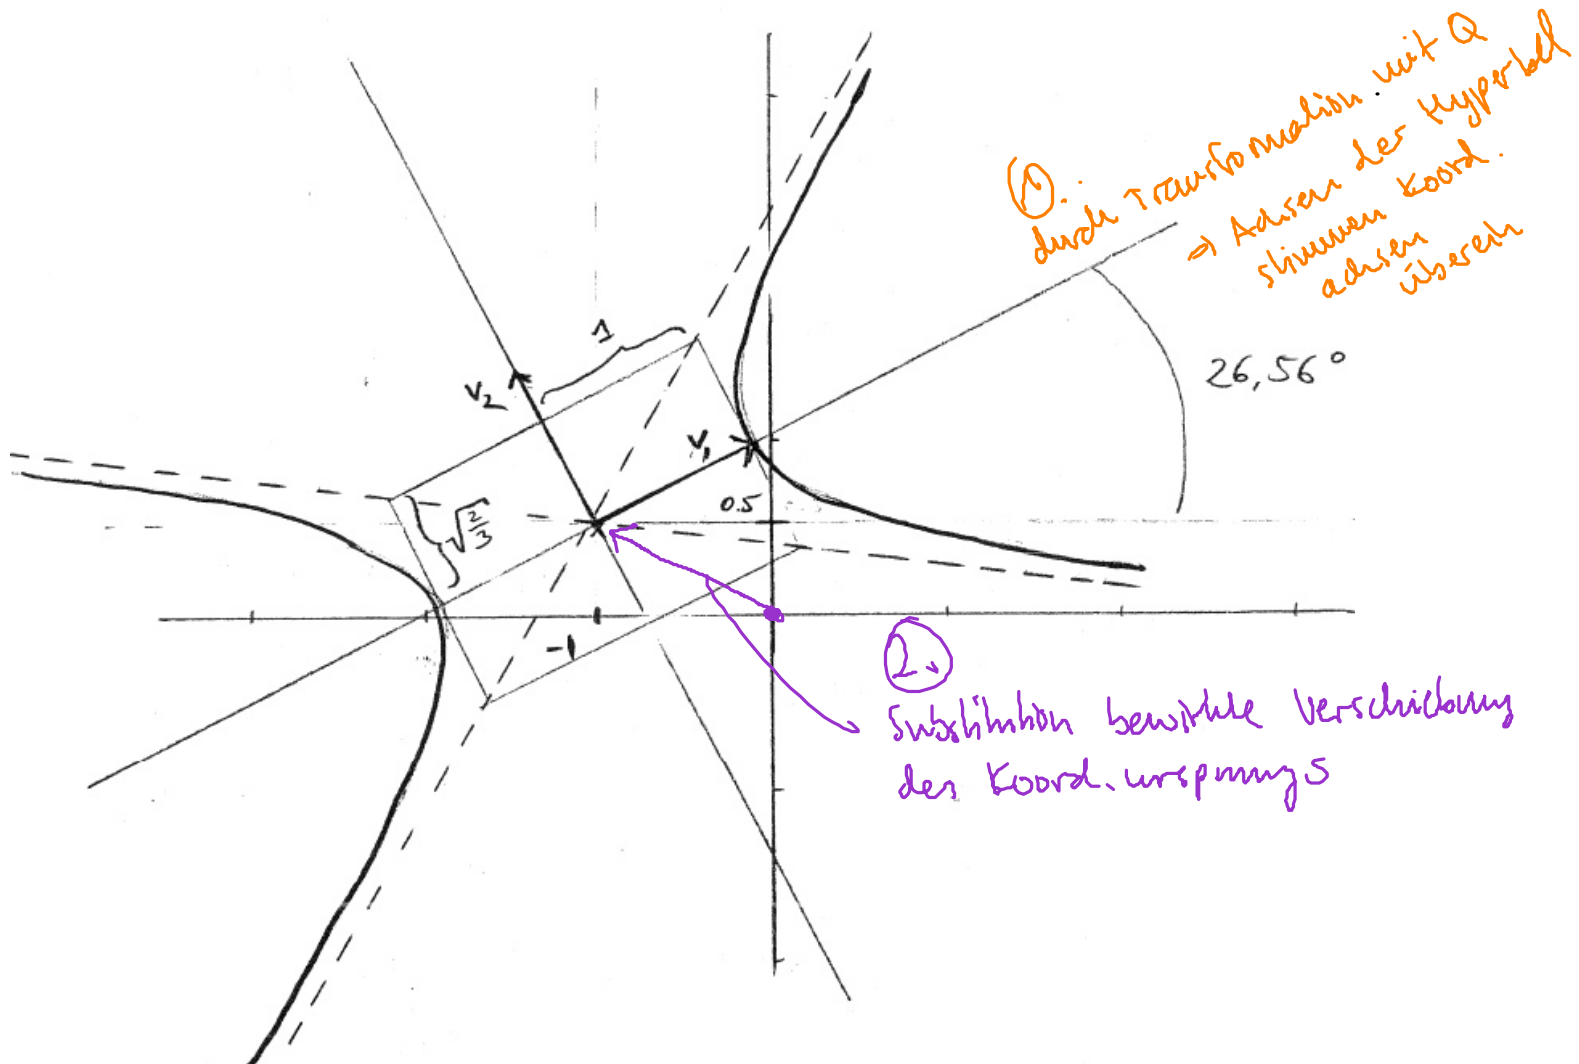 1.:
durch Transformation mit Q
⇒ Achsen der Hyperbel
stimmen Koord.
achsen
überein
26,56°
1
v₂
v₁
√(2/3)
0.5
-1
2.
Substitution bewirkte Verschiebung
des Koord.ursprungs